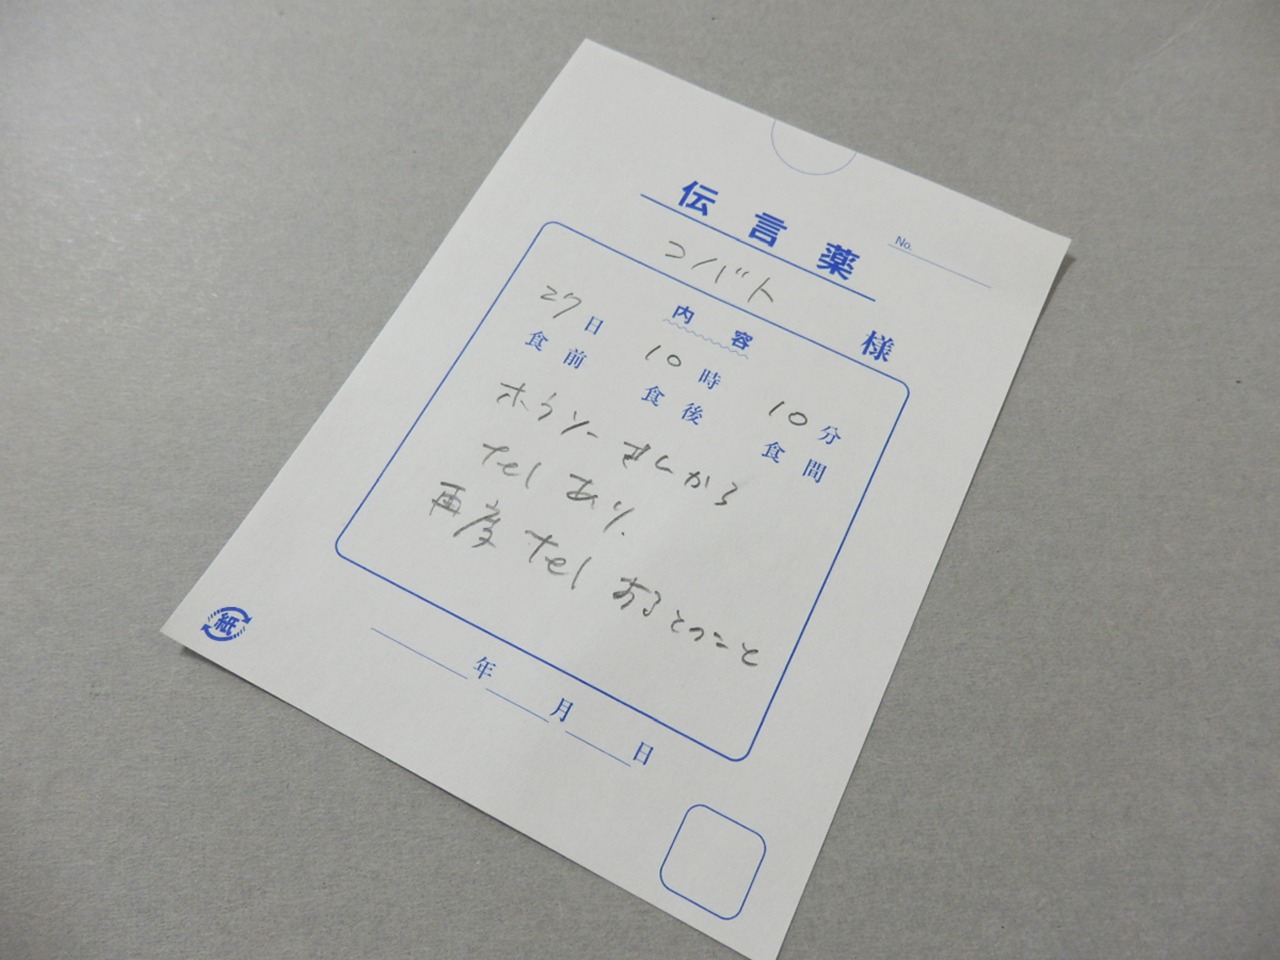 伝言薬
No.
コバト 様
内容
27日 10時 10分
食前 食後 食間
ホウソーさんから
telあり.
再度telあるとのこと
年 月 日
紙